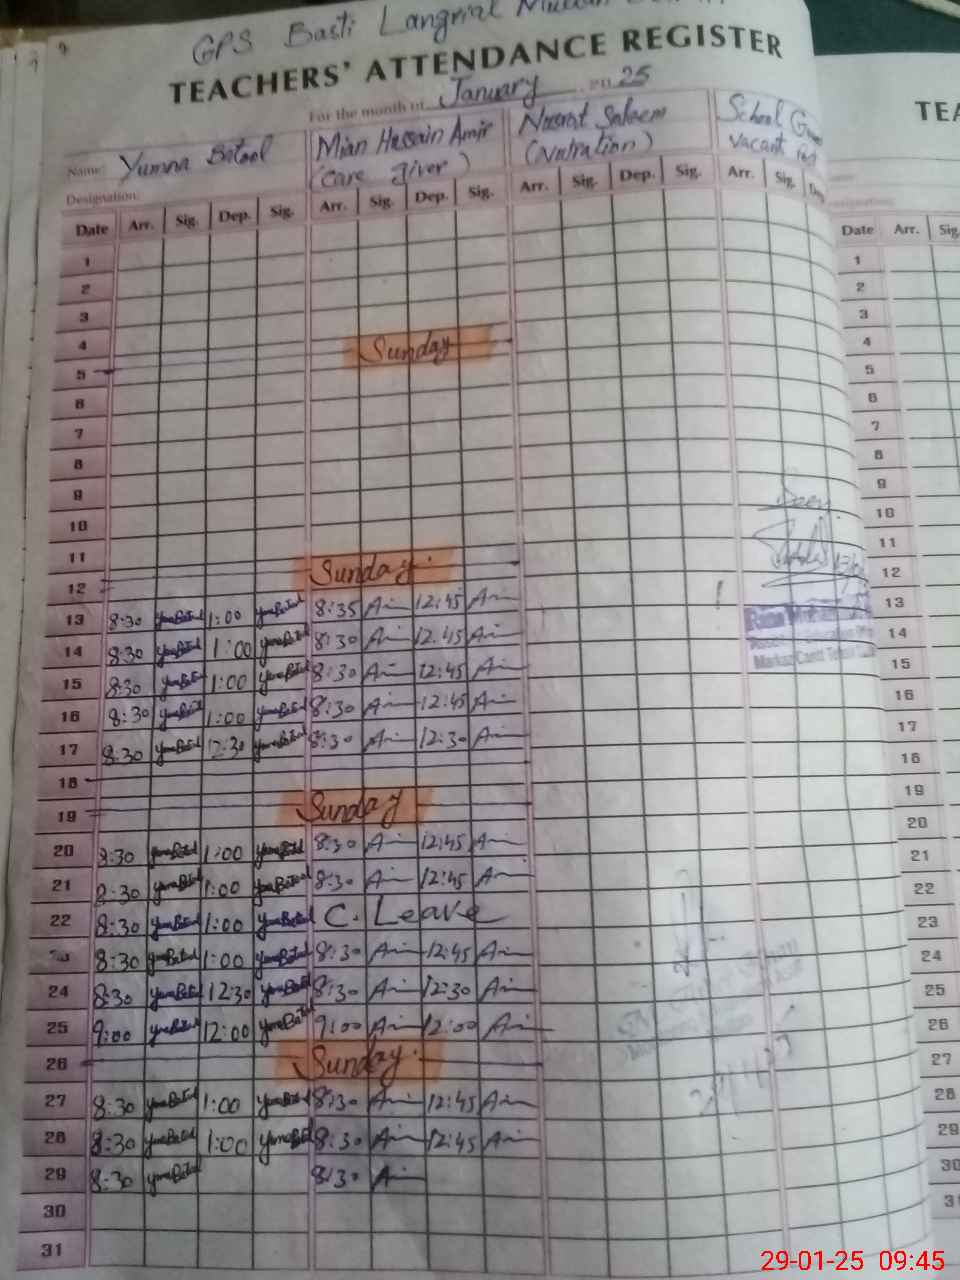 GPS Basti Langrial
TEACHERS' ATTENDANCE REGISTER
For the month of January 2025
Name: Yumna Batool Mian Hussain Amir Nusrat Saleem School
Designation: (Care giver) (Nutration) vacant
Date Arr. Sig. Dep. Sig. Arr. Sig. Dep. Sig. Arr. Sig. Dep. Sig. Arr. Sig. Dep.
1
2
3
4 Sunday
5
6
7
8
9
10
11
12 Sunday
13 8:30 YumnaBatool 1:00 YumnaBatool 8:35 12:45
14 8:30 YumnaBatool 1:00 YumnaBatool 8:30 12:45
15 8:30 YumnaBatool 1:00 YumnaBatool 8:30 12:45
16 8:30 YumnaBatool 1:00 YumnaBatool 8:30 12:45
17 8:30 YumnaBatool 12:30 YumnaBatool 8:30 12:30
18
19 Sunday
20 8:30 YumnaBatool 1:00 YumnaBatool 8:30 12:45
21 8:30 YumnaBatool 1:00 YumnaBatool 8:30 12:45
22 8:30 YumnaBatool 1:00 YumnaBatool C. Leave
8:30 YumnaBatool 1:00 YumnaBatool 8:30 12:45
24 8:30 YumnaBatool 12:30 YumnaBatool 8:30 12:30
25 9:00 YumnaBatool 12:00 YumnaBatool 9:00 12:00
26 Sunday
27 8:30 YumnaBatool 1:00 YumnaBatool 8:30 12:45
28 8:30 YumnaBatool 1:00 YumnaBatool 8:30 12:45
29 8:30 YumnaBatool 8:30
30
31
TEA
Date Arr. Sig.
1
2
3
4
5
6
7
8
9
10
11
12
13
14
15
16
17
18
19
20
21
22
23
24
25
26
27
28
29
30
3
29-01-25 09:45